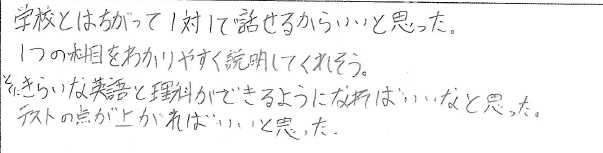 学校とはちがって1対1で話せるからいいと思った。
1つの科目をわかりやすく説明してくれそう。
きらいな英語と理科ができるようになればいいなと思った。
テストの点が上がればいいと思った.